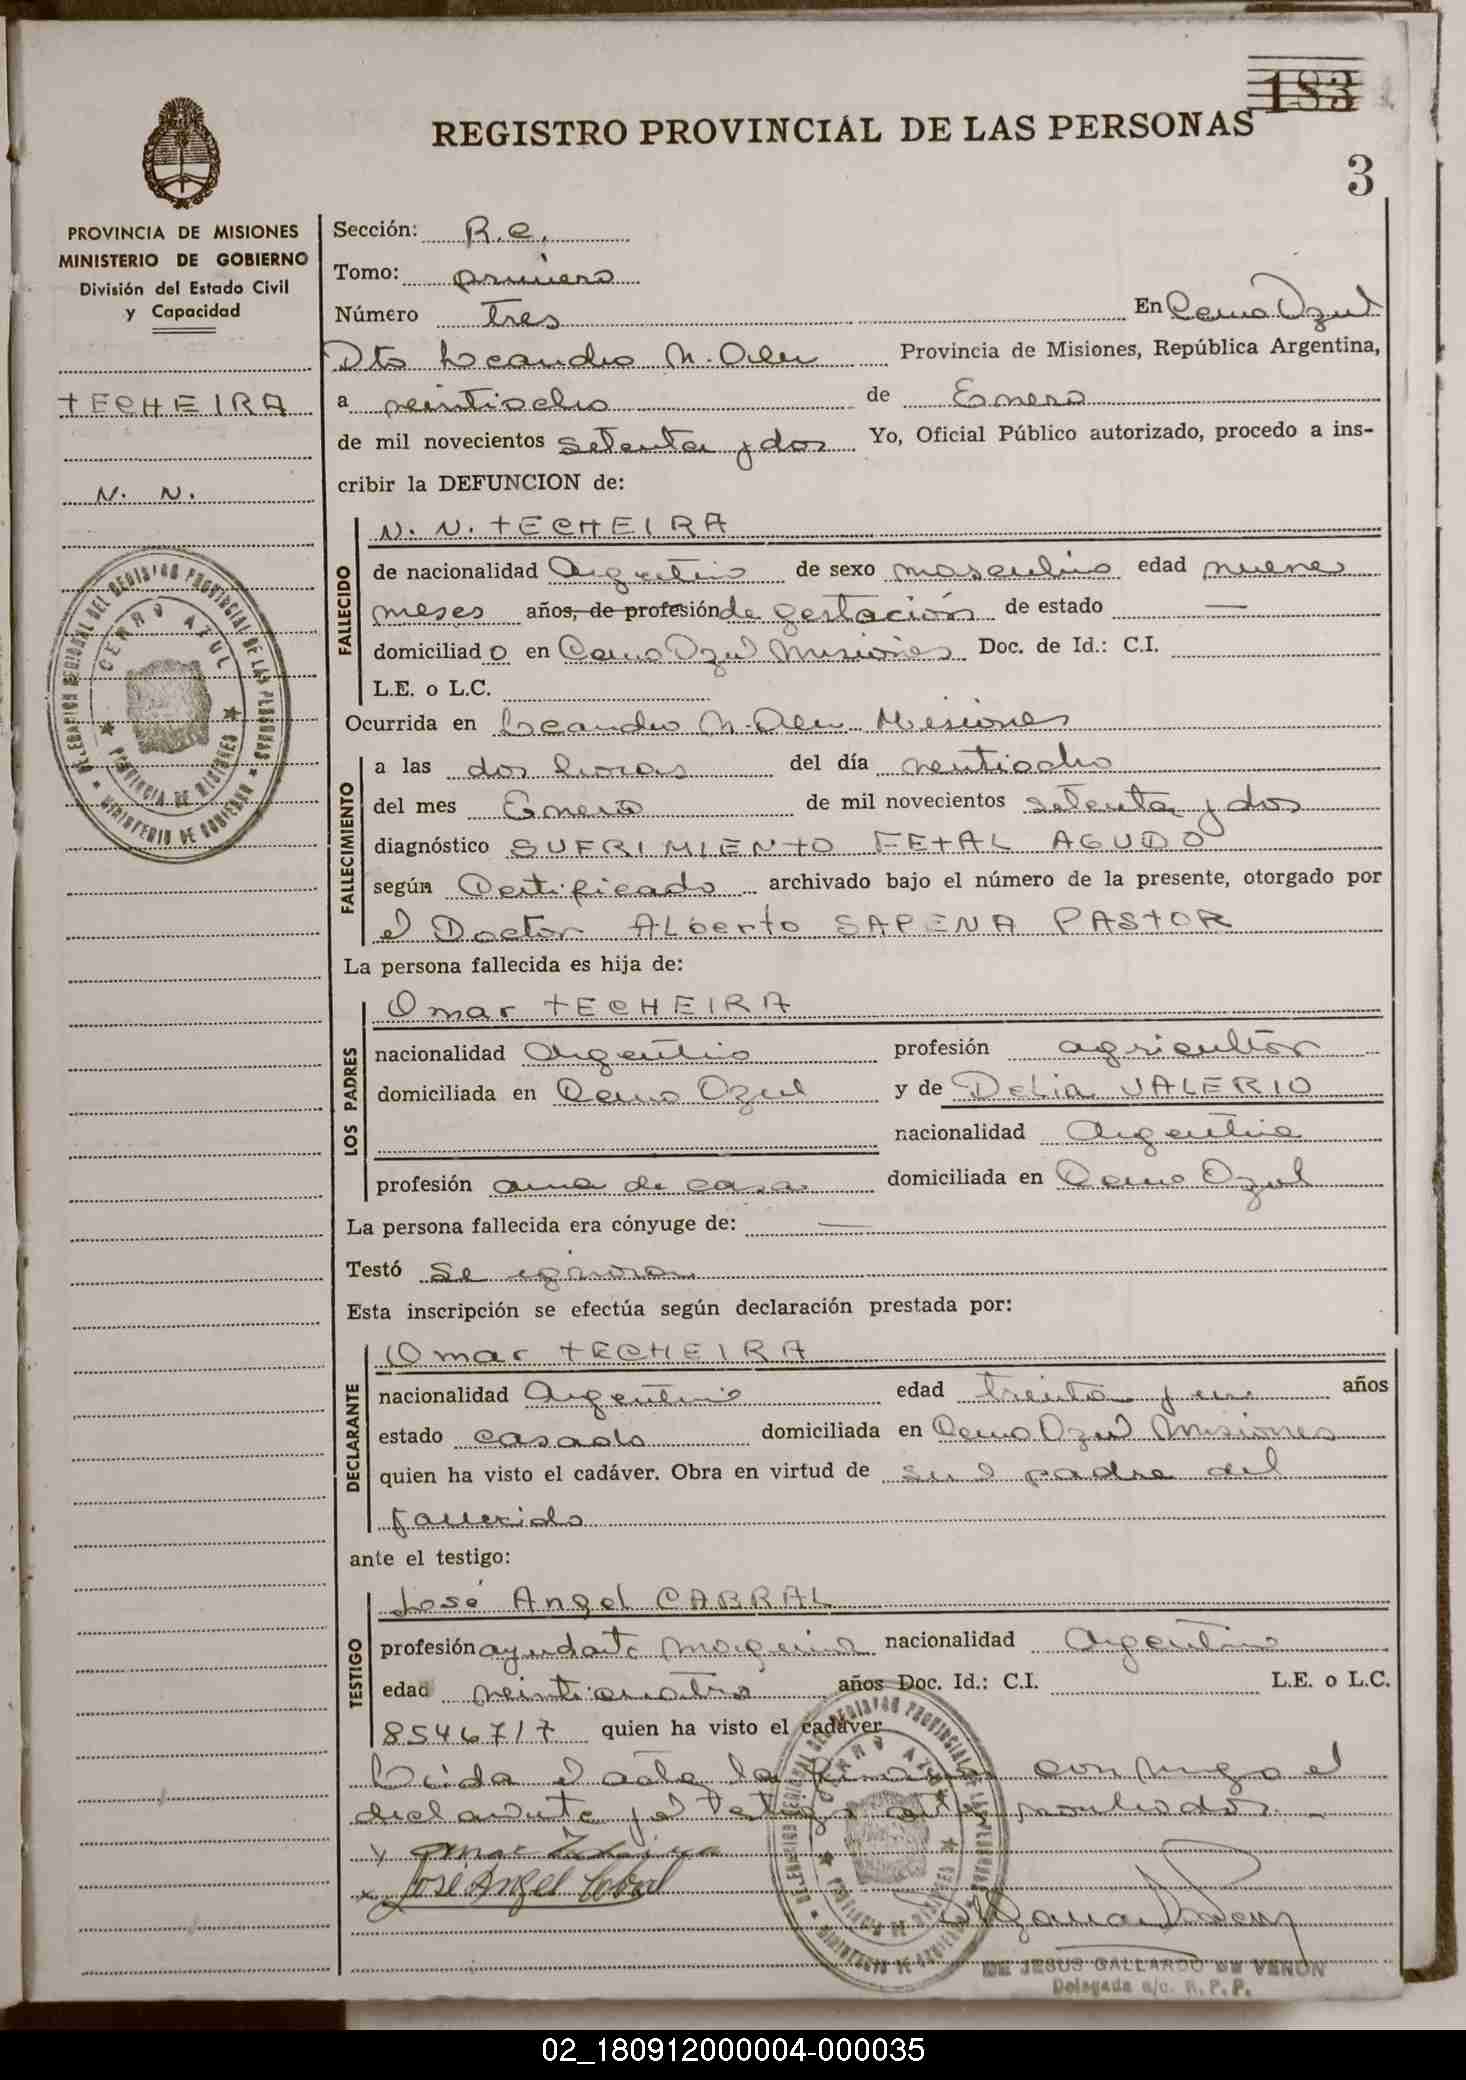 183
REGISTRO PROVINCIAL DE LAS PERSONAS
3
PROVINCIA DE MISIONES
MINISTERIO DE GOBIERNO
División del Estado Civil
y Capacidad
TECHEIRA
N. N.
DELEGACION REGIONAL DEL REGISTRO PROVINCIAL DE LAS PERSONAS
CERRO AZUL
PROVINCIA DE MISIONES
MINISTERIO DE GOBIERNO
Sección: R.e.
Tomo: primero
Número tres En Cerro Azul
Dto Leandro N. Alem Provincia de Misiones, República Argentina,
a veintiocho de Enero
de mil novecientos setenta y dos Yo, Oficial Público autorizado, procedo a ins-
cribir la DEFUNCION de:
FALLECIDO
N. N. TECHEIRA
de nacionalidad Argentino de sexo masculino edad nueve
meses años, de profesión de gestación de estado —
domiciliado en Cerro Azul Misiones Doc. de Id.: C.I.
L.E. o L.C.
Ocurrida en Leandro N. Alem Misiones
FALLECIMIENTO
a las dos horas del día veintiocho
del mes Enero de mil novecientos setenta y dos
diagnóstico SUFRIMIENTO FETAL AGUDO
según Certificado archivado bajo el número de la presente, otorgado por
el Doctor ALberto SAPENA PASTOR
La persona fallecida es hija de:
LOS PADRES
Omar TECHEIRA
nacionalidad Argentino profesión agricultor
domiciliada en Cerro Azul y de DeLia VALERIO
nacionalidad Argentina
profesión ama de casa domiciliada en Cerro Azul
La persona fallecida era cónyuge de: —
Testó se ignora
Esta inscripción se efectúa según declaración prestada por:
DECLARANTE
Omar TECHEIRA
nacionalidad Argentino edad treinta y un años
estado casado domiciliada en Cerro Azul Misiones
quien ha visto el cadáver. Obra en virtud de ser el padre del
fallecido
ante el testigo:
TESTIGO
José Angel CABRAL
profesión ayudante nacionalidad Argentino
edad veinticuatro años Doc. Id.: C.I. L.E. o L.C.
8546717 quien ha visto el cadáver
Leída el acta la firman conmigo el
declarante y el testigo nombrados.
x Omar Techeira
x José Angel Cabral
DELEGACION REGIONAL DEL REGISTRO PROVINCIAL DE LAS PERSONAS
CERRO AZUL
PROVINCIA DE MISIONES
MINISTERIO DE GOBIERNO
DE JESUS GALLARDO DE VENON
Delegada a/c. R. P. P.
02_180912000004-000035